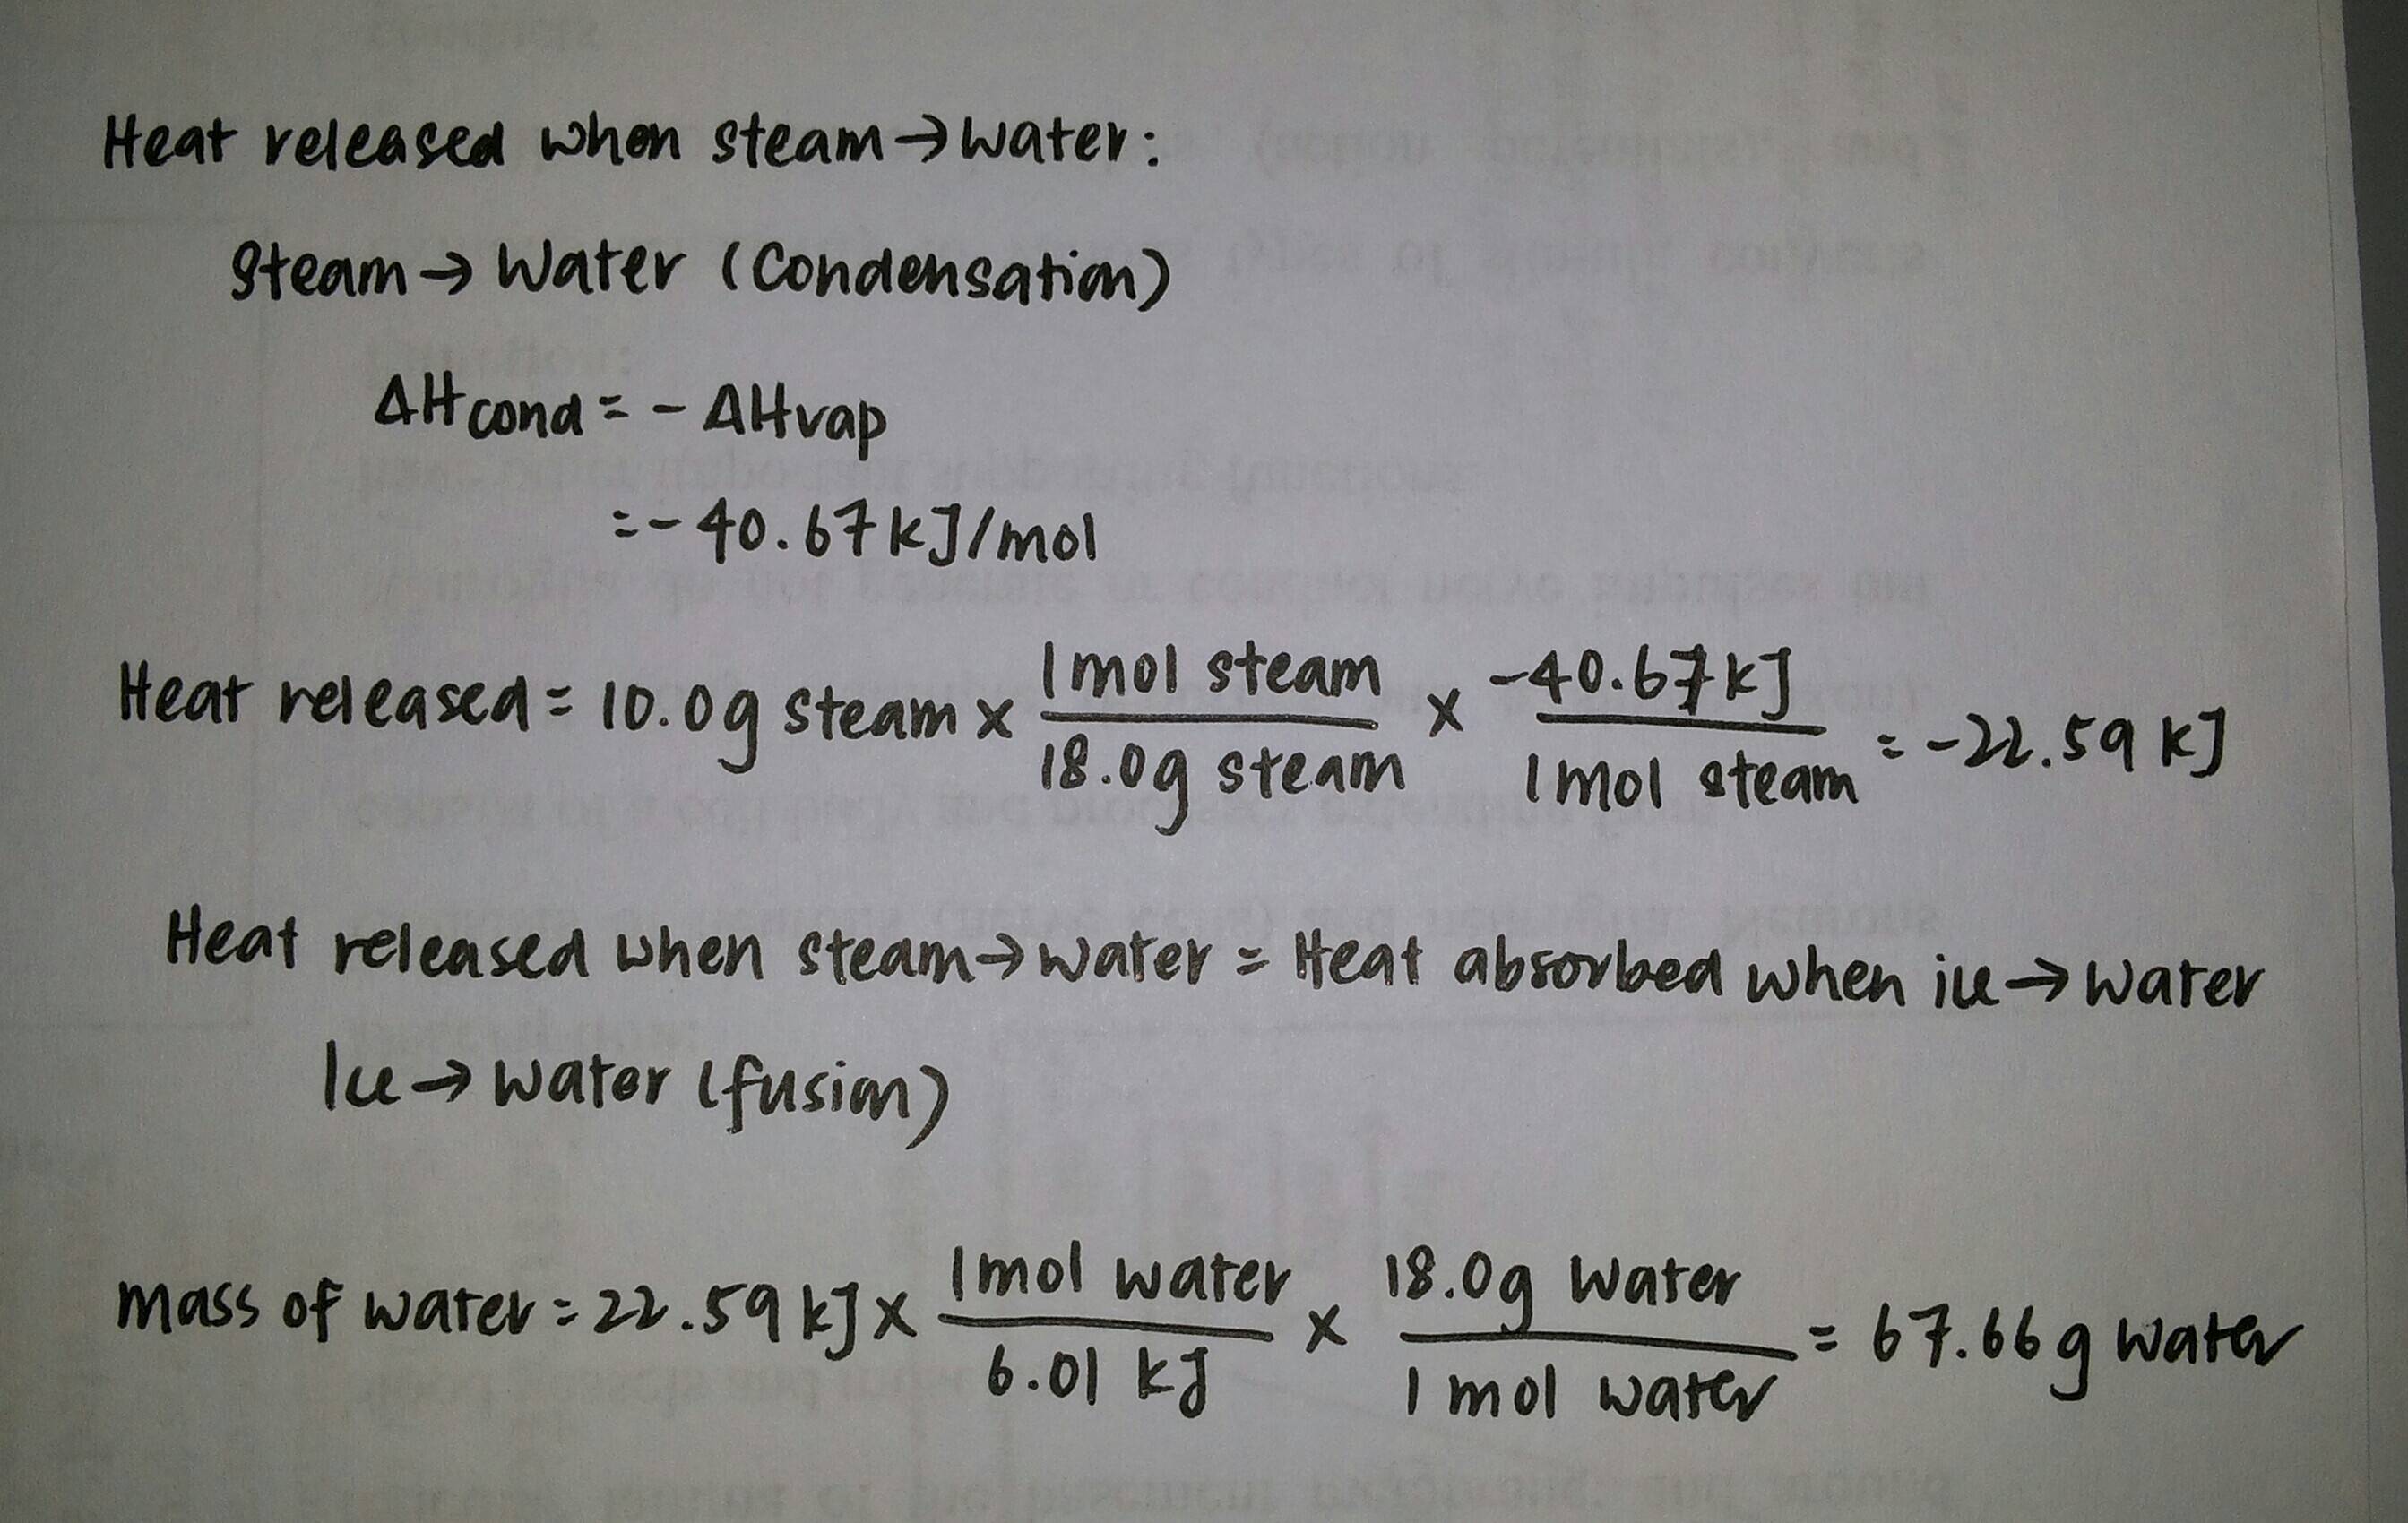 Heat released when steam → water:
Steam → Water (Condensation)
ΔHcond = - ΔHvap
= - 40.67 kJ/mol
Heat released = 10.0g steam x 1 mol steam / 18.0g steam x -40.67 kJ / 1 mol steam = -22.59 kJ
Heat released when steam → water = Heat absorbed when ice → water
Ice → water (fusion)
mass of water = 22.59 kJ x 1 mol water / 6.01 kJ x 18.0g water / 1 mol water = 67.66 g water